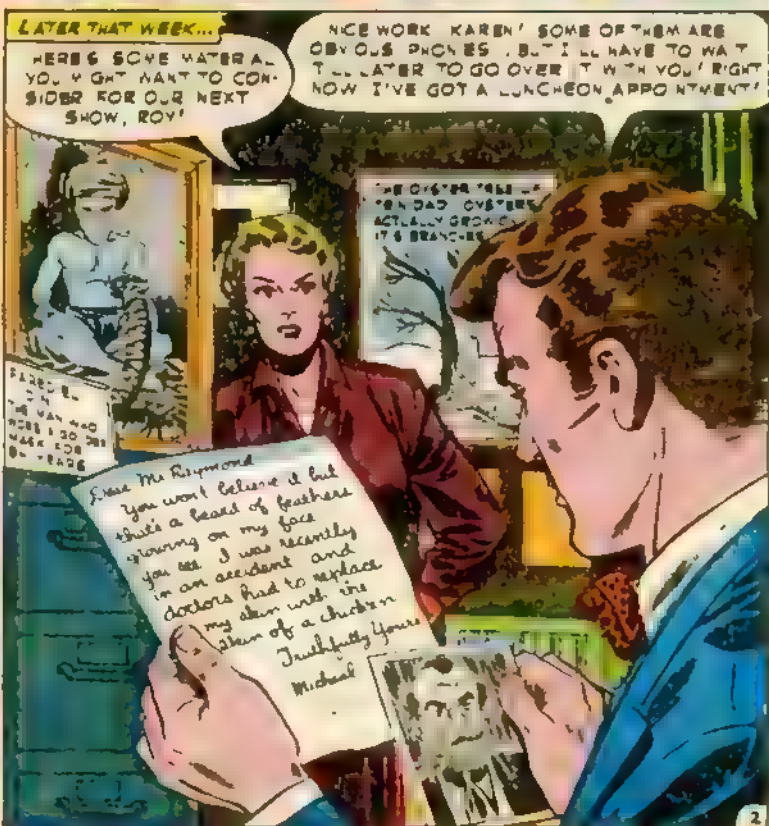 LATER THAT WEEK...
HERE'S SOME MATERIAL
YOU MIGHT WANT TO CON-
SIDER FOR OUR NEXT
SHOW, ROY!
NICE WORK KAREN! SOME OF THEM ARE
OBVIOUS PHONIES. BUT I'LL HAVE TO WAIT
TILL LATER TO GO OVER IT WITH YOU! RIGHT
NOW I'VE GOT A LUNCHEON APPOINTMENT!
THE OYSTER TREE OF
TRINIDAD OYSTERS
ACTUALLY GROW ON
ITS BRANCHES
THE MAN WHO
WORE A
MASK FOR
YEARS
Dear Mr Raymond
You won't believe it but
that's a beard of feathers
growing on my face
you see I was recently
in an accident and
doctors had to replace
my skin with the
skin of a chicken
Truthfully Yours
Michael
2